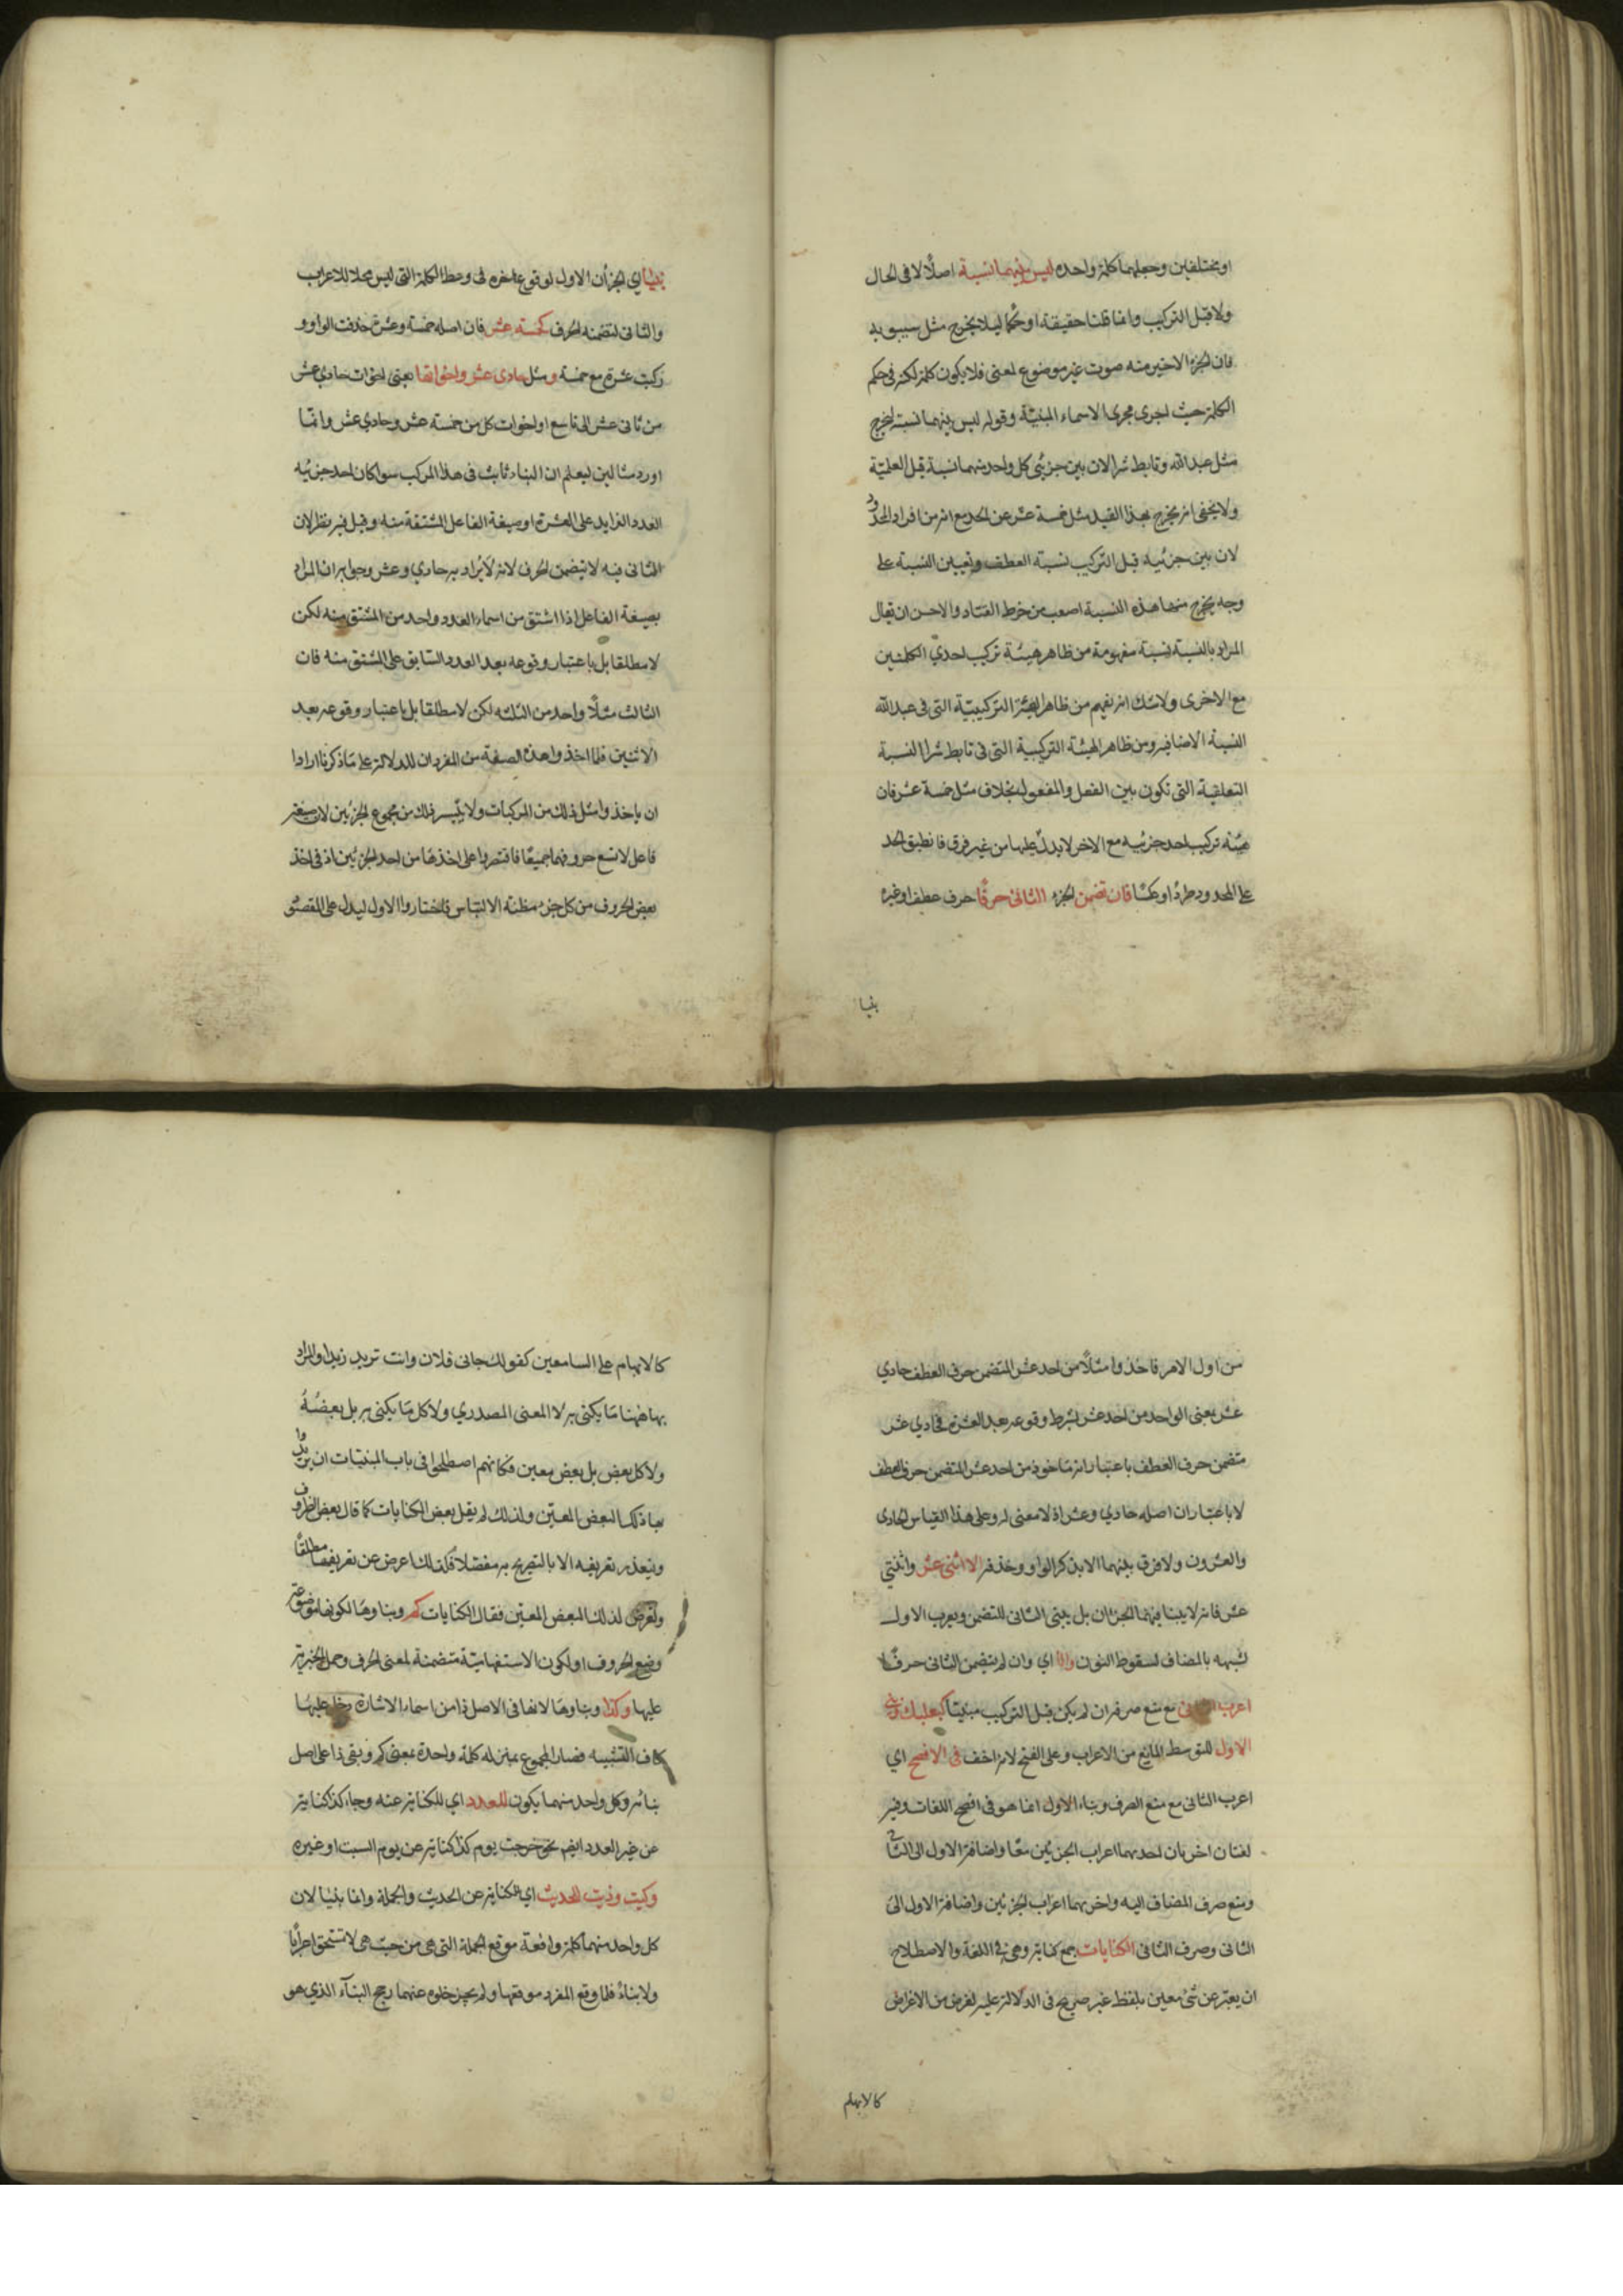 او مختلفين وجعلهما كلمة واحدة ليس بينهما نسبة اصلًا لا فى الحال
ولا قبل التركيب وانما قلنا حقيقة او حكمًا ليلا يخرج مثل سيبويه
فان الجزء الاخير منه صوت غير موضوع لمعنى فلا يكون كلمة لكنه فى حكم
الكلمة حيث اجرى مجرى الاسماء المبنيّة وقوله ليس بينهما نسبة ليخرج
مثل عبد الله وتابط شرا لان بين جزئي كل واحد منهما نسبة قبل العلميّة
ولا يخفى انه يخرج بهذا القيد مثل خمسة عشر عن الحد مع انه من افراد المحدود
لان بين جزئيه قبل التركيب نسبة العطف وتعيين النسبة على
وجه يخرج منها هذه النسبة اصعب من خرط القتاد والاحسن ان يقال
المراد بالنسبة نسبة مفهومة من ظاهر هيئة تركيب احدي الكلمتين
مع الاخرى ولا شك انه يفهم من ظاهر الهيئة التركيبيّة التى فى عبد الله
النسبة الاضافيه ومن ظاهر الهيئة التركيبية التى فى تابط شرا النسبة
التعلقية التى تكون بين الفعل والمفعول بخلاف مثل خمسة عشر فان
هيئة تركيب احد جزئيه مع الاخر لا يدل عليها من غير فرق فانطبق الحد
على المحدود طردًا وعكسًا فان تضمن الجزء الثانى حرفًا حرف عطف او غيره
بنيا
بنيا اي الجزأن الاول لوقوع اخره فى وسط الكلمة التى ليس محلا للاعراب
والثانى لتضمنه الحرف كخمسة عشر فان اصله خمسة وعشرة حذفت الواو و
ركبت عشرة مع خمسة ومثل حادى عشر واخواتها يعنى اخوات حادي عشر
من ثانى عشر الى تاسع او اخوات كل من خمسة عشر وحادي عشر وانّما
اورد مثالين ليعلم ان البناء ثابت فى هذا المركب سوا كان احد جزئيه
العدد الزايد على العشرة او صيغة الفاعل المشتقة منه وقيل فيه نظر لان
الثانى فيه لا يتضمن الحرف لانه لا يُراد به حادي وعشر وجوابه ان المراد
بصيغة الفاعل اذا اشتق من اسماء العدد واحد من المشتق منه لكن
لا مطلقا بل باعتبار وقوعه بعد العدد السّابق على المشتق منه فان
الثالث مثلًا واحد من الثلثة لكن لا مطلقا بل باعتبار وقوعه بعد
الاثنين فلما اخذوا هذه الصيغة من المفردات للدلالة على ما ذكرنا ارادوا
ان ياخذوا مثل ذلك من المركبات ولا يتيسر ذلك من مجموع الجزئين لان صيغة
فاعل لا تسع حروفهما جميعًا فاقتصروا على اخذها من احد الجزئين اذ فى اخذ
بعض الحروف من كل جزء مظنة الالتباس فاختاروا الاول ليدل على المقصود
من اول الامر فاخذوا مثلًا من احد عشر المتضمن حرف العطف حادي
عشر بمعنى الواحد من احد عشر بشرط وقوعه بعد العشرة فحادي عشر
متضمن حرف العطف باعتبار انه ماخوذ من احد عشر المتضمن حرف العطف
لا باعتبار ان اصله حادي وعشر اذ لا معنى له وعلى هذا القياس الحادى
والعشرون ولا فرق بينهما الا بذكر الواو وحذفه الا اثنى عشر واثنتي
عشر فانه لا يبنا فيهما الجزئان بل يبنى الثانى للتضمن ويعرب الاول
لشبهه بالمضاف لسقوط النون والا اي وان لم يتضمن الثانى حرفًا
اعرب الثانى مع منع صرفه ان لم يكن قبل التركيب مبنيّا كبعلبك وبنى
الاول للتوسط المانع من الاعراب وعلى الفتح لانه اخف فى الافصح اي
اعرب الثانى مع منع الصرف وبناء الاول انما هو فى افصح اللغات وفيه
لغتان اخريان احدهما اعراب الجزئين معًا واضافة الاول الى الثانى
ومنع صرف المضاف اليه واخرهما اعراب الجزئين واضافة الاول الى
الثانى وصرف الثانى الكنايات جمع كناية وهى فى اللغة والاصطلاح
ان يعبّر عن شئ معين بلفظ غير صريح فى الدلالة عليه لغرض من الاغراض
كالابهام
كالابهام على السامعين كقولك جانى فلان وانت تريد زيدا والمراد
بها ههنا ما يكنى به لا المعنى المصدري ولا كل ما يكنى به بل بعضُهُ
ولا كل بعض بل بعض معين فكانهم اصطلحوا فى باب المبنيات ان يريدوا
بها ذلك البعض المعيّن ولذلك لم يقل بعض الكنايات كما قال بعض الظروف
ويتعذر تعريفه الا بالتصريح به مفصلا فلذلك اعرض عن تعريفها مطلقًا
وتعرض لذلك البعض المعيّن فقال الكنايات كم وبناوها لكونها موضوعة
وضع الحروف او لكون الاستفهاميّة متضمنة لمعنى الحرف وحمل الخبرية
عليها وكذا وبناوها لانها فى الاصل ذا من اسماء الاشارة دخل عليها
كاف التشبيه فصار المجموع بمنزله كلمة واحدة بمعنى كم وبقى ذا على اصل
بنائه وكل واحد منهما يكون للعدد اي للكناية عنه وجاء كذا كناية
عن غير العدد ايضم نحو خرجت يوم كذا كناية عن يوم السبت او غيره
وكيت وذيت للحديث اي للكناية عن الحديث والجملة وانما بنيا لان
كل واحد منهما كلمة واقعة موقع الجملة التى هى من حيث هى لا تستحق اعرابًا
ولا بناءً فلما وقع المفرد موقعها ولم يجز خلوه عنهما رجح البناء الذي هو